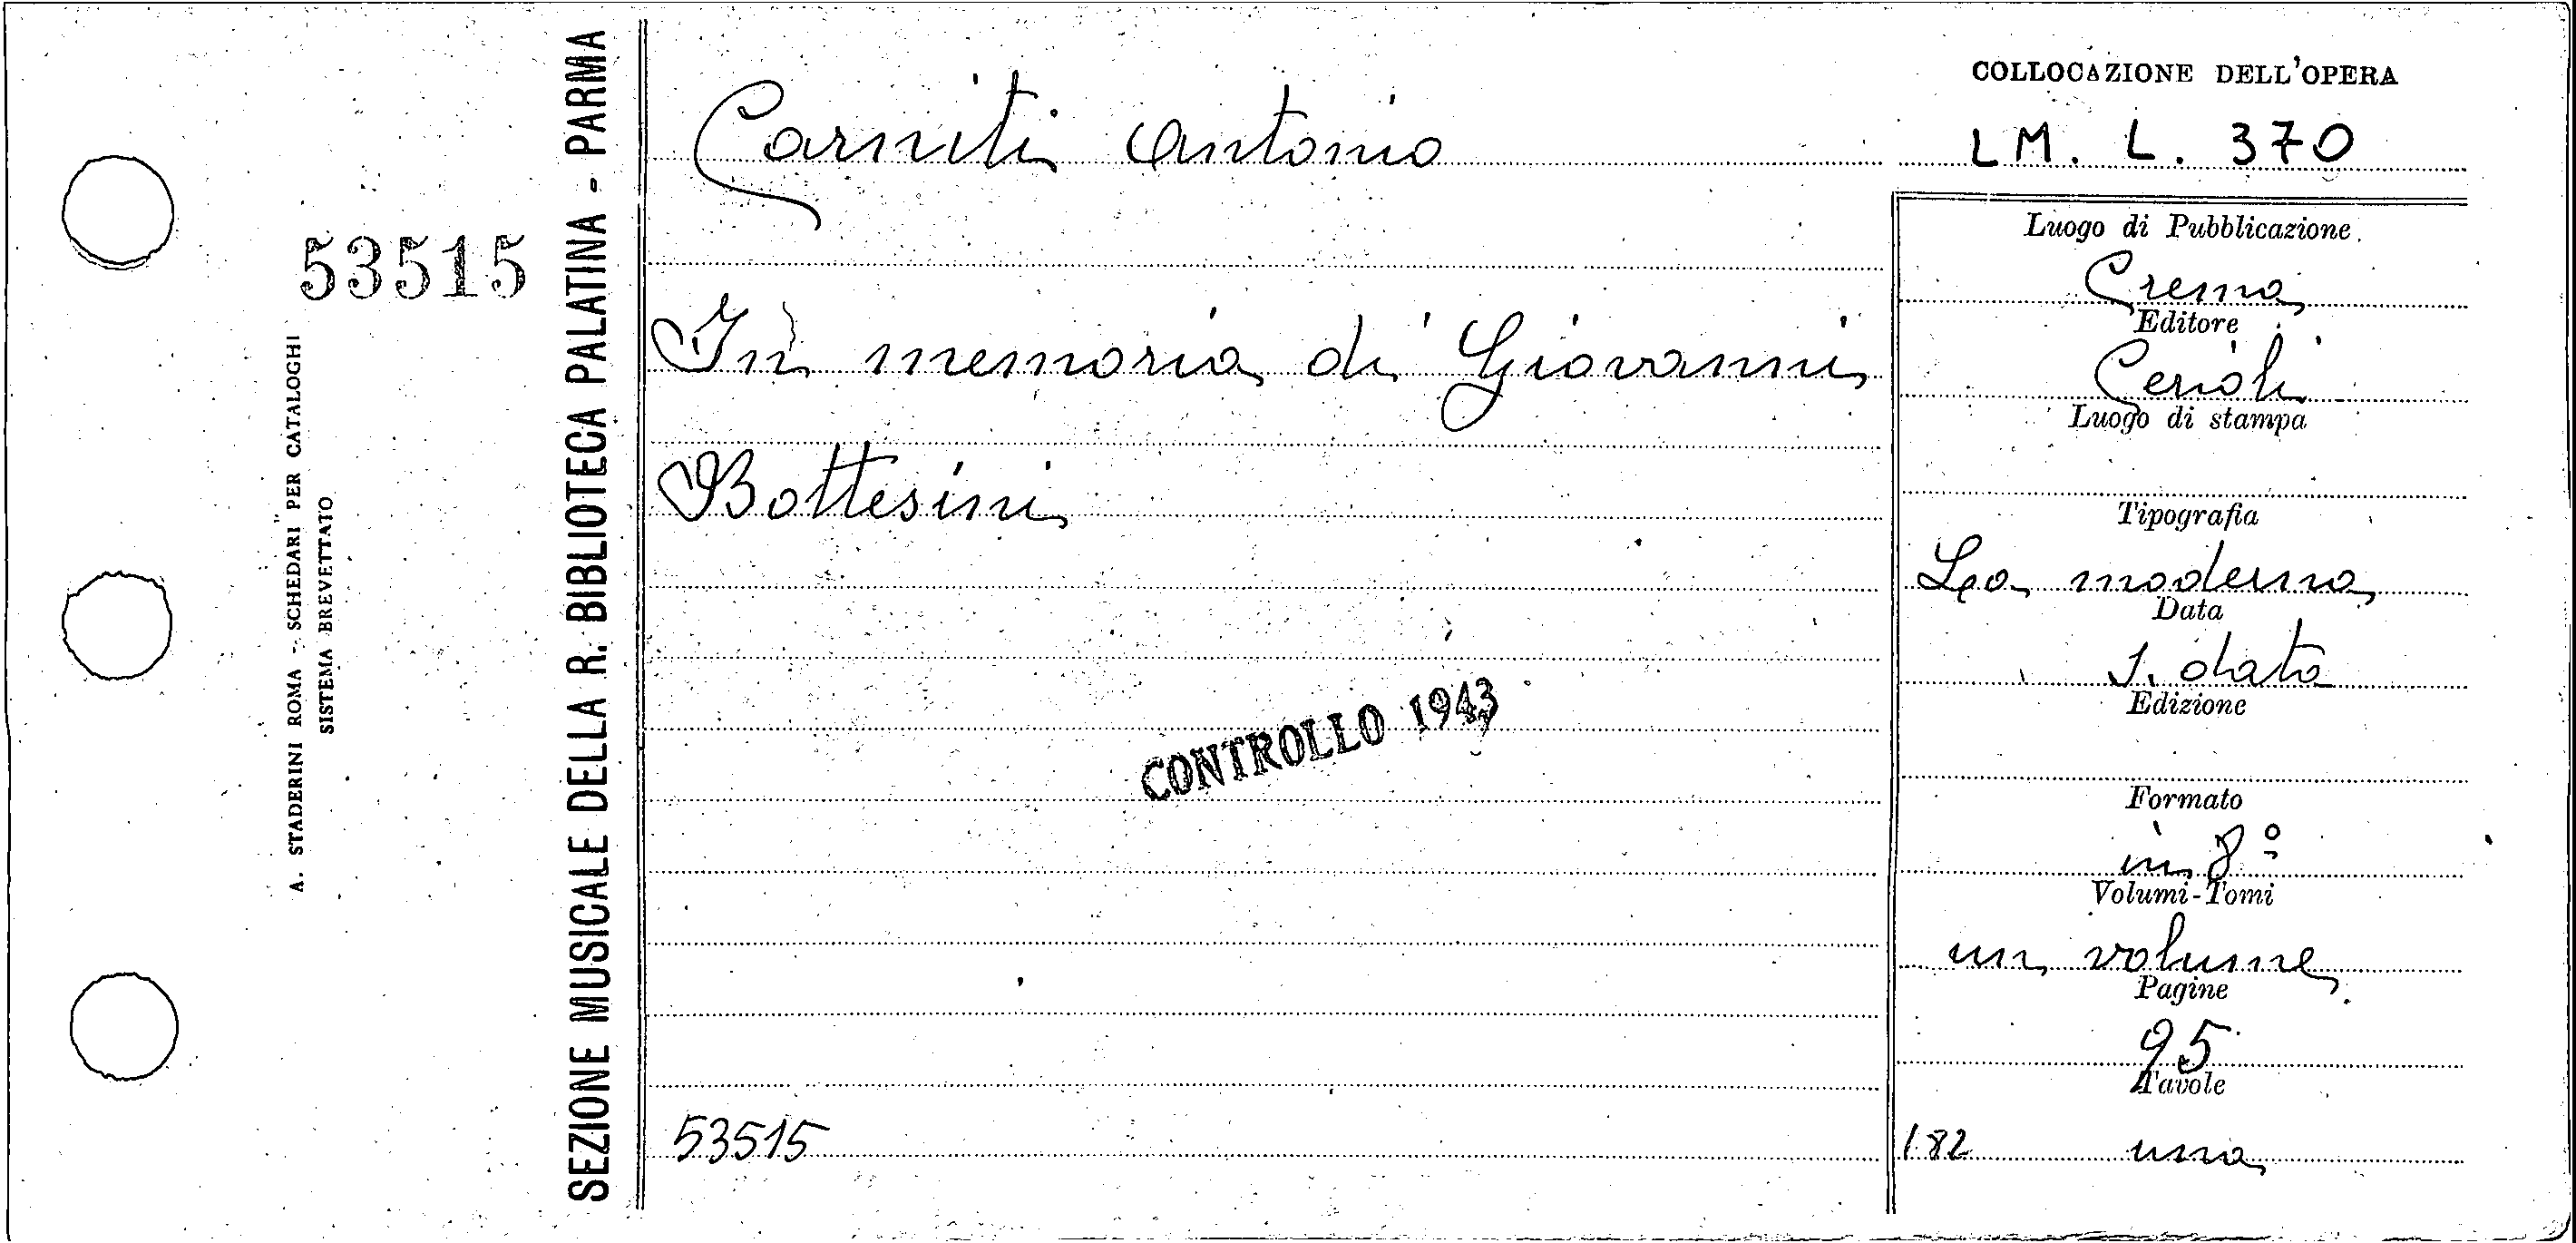 53515
A. STADERINI ROMA - SCHEDARI PER CATALOGHI
SISTEMA BREVETTATO
SEZIONE MUSICALE DELLA R. BIBLIOTECA PALATINA - PARMA
Carniti Antonio
In memoria di Giovanni
Bottesini
CONTROLLO 1943
53515
COLLOCAZIONE DELL'OPERA
LM. L. 370
Luogo di Pubblicazione
Crema
Editore
Cerioli
Luogo di stampa
Tipografia
La moderna
Data
s. data
Edizione
Formato
in 8º
Volumi-Tomi
un volume
Pagine
95
Tavole
182 una